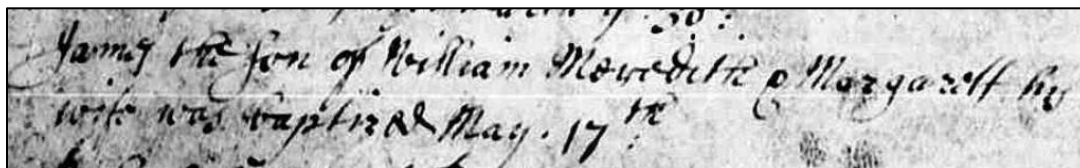 James the son of William Meredith & Margarett his
wife was baptized May. 17th